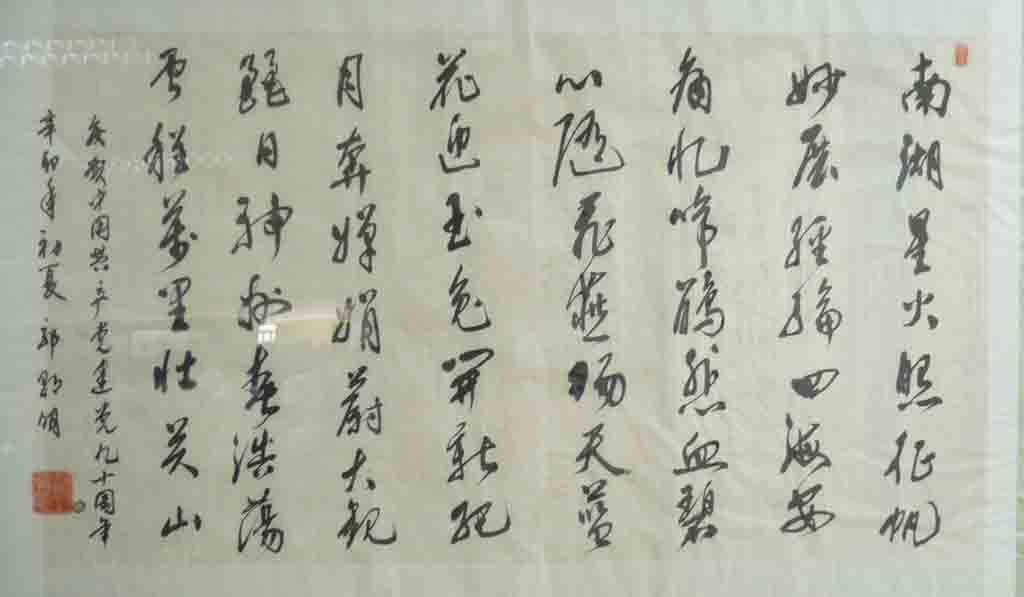 南湖星火照征帆
妙展经纶四海安
痛忆啼鹃然血碧
心随飞燕场天蓝
花迎玉兔开新纪
月奔婵娟蔚大观
丽日神州春浩荡
雪程万里壮关山
庆贺中国共产党建党九十周年
辛卯年初夏